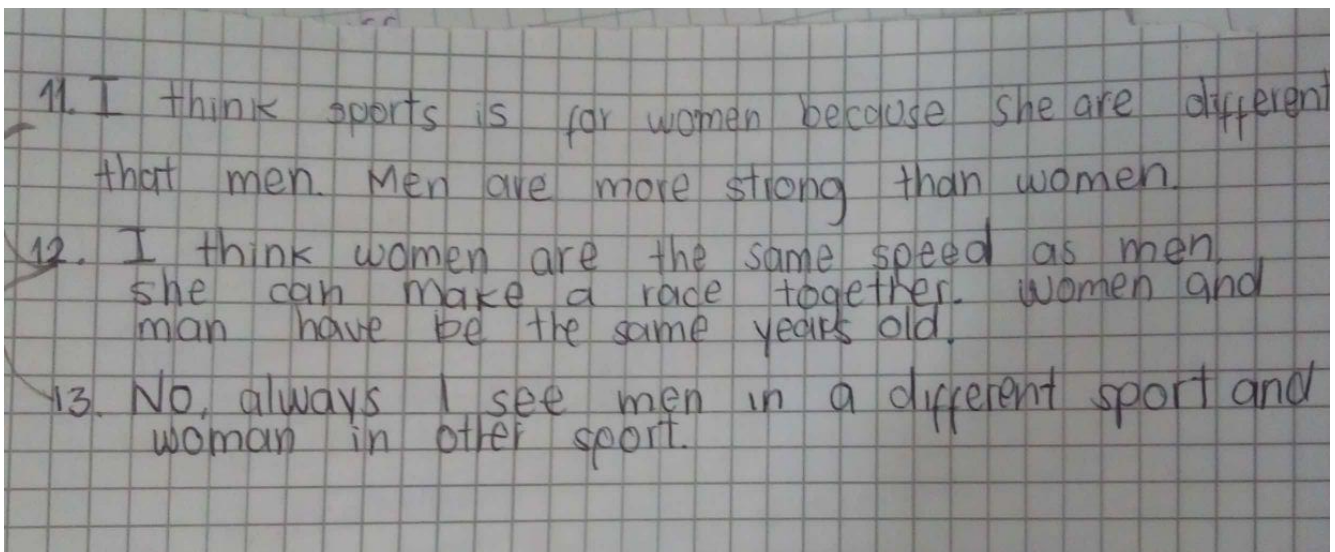 11. I think sports is for women because she are different
that men. Men are more strong than women.
12. I think women are the same speed as men.
she can make a race together. Women and
man have be the same years old.
13. No, always I see men in a different sport and
woman in other sport.